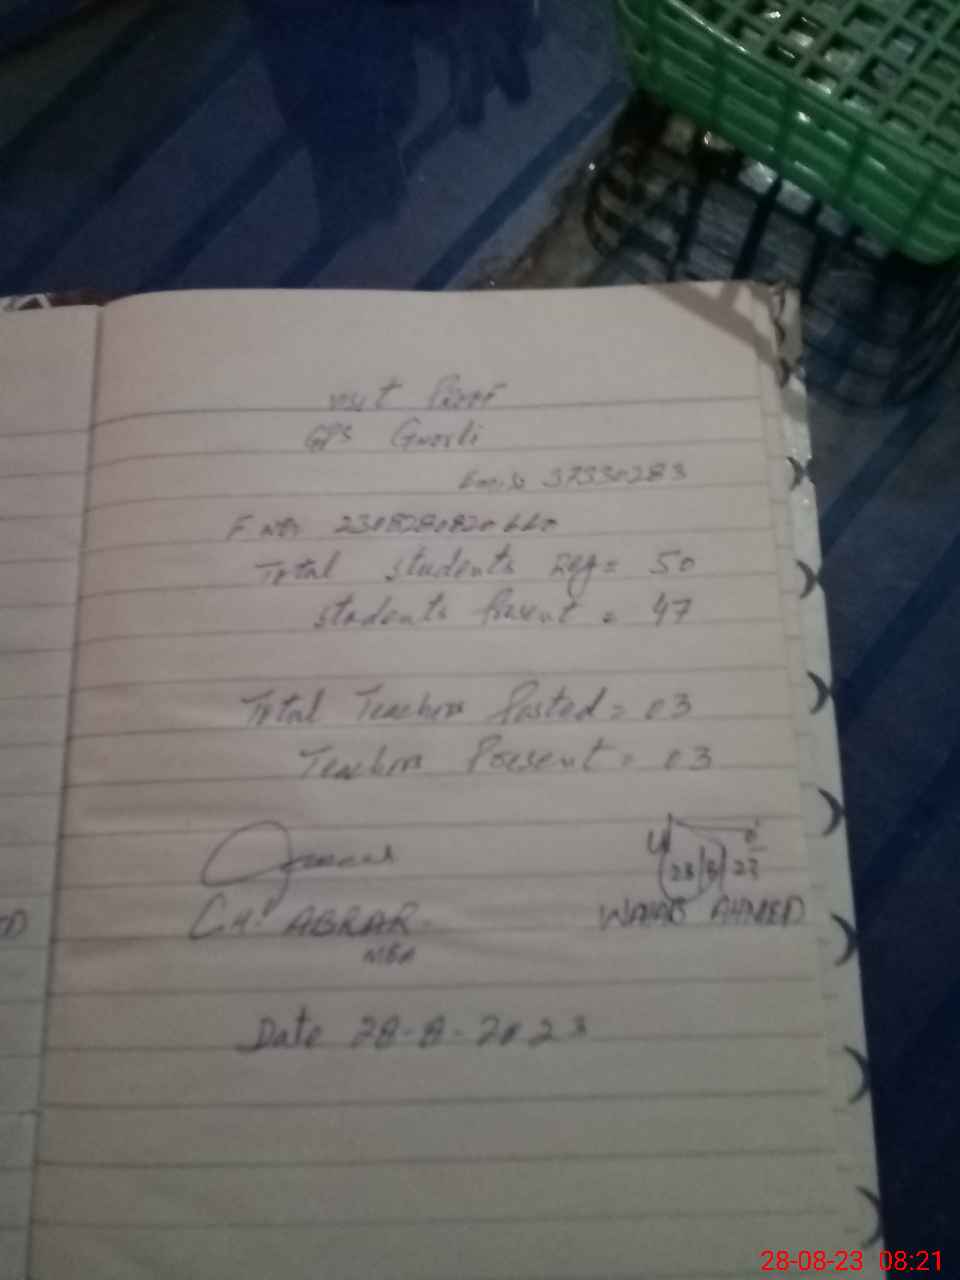 visit Proof
GPS Gworli
Emis 37330283
Total Students Reg = 50
Students Present = 47
Total Teachers Posted = 03
Teachers Present = 03
28/8/23
CH. ABRAR
WAHAB AHMED
MEA
Date 28-8-2023
ED
28-08-23 08:21